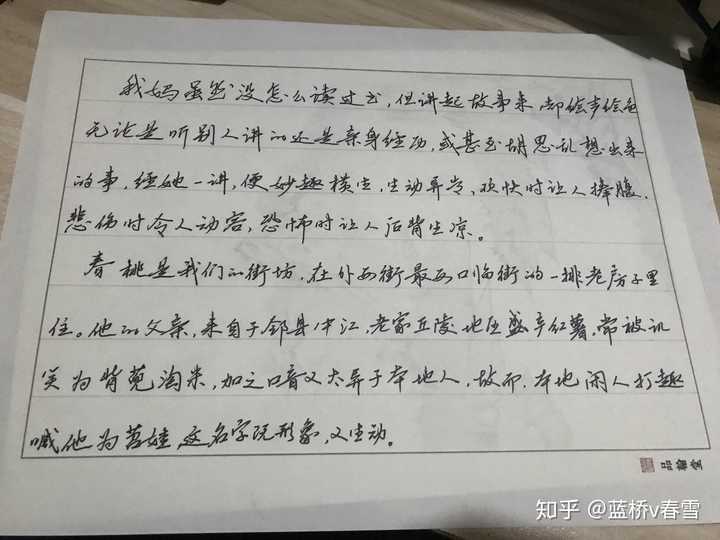 我妈虽然没怎么读过书，但讲起故事来却绘声绘色
无论是听别人讲的还是亲身经历，或甚至胡思乱想出来
的事，经她一讲，便妙趣横生，生动异常、欢快时让人捧腹，
悲伤时令人动容，恐怖时让人后背生凉。
春桃是我们的街坊，在外西街最西口临街的一排老房子里
住。他的父亲，来自于邻县中江，老家丘陵地区盛产红薯，常被讥
笑为背篼淘米，加之口音又大异于本地人，故而，本地闲人打趣
喊他为苕娃，这名字既形象，又生动。
品翰堂
知乎 @蓝桥v春雪